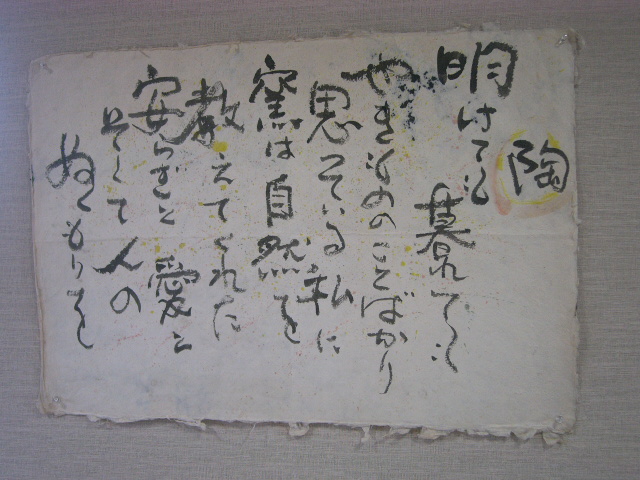 陶
明けても
暮れても
やきもののことばかり
思っている私に
窯は自然を
教えてくれた
安らぎと 愛と
そして人の
ぬくもりを